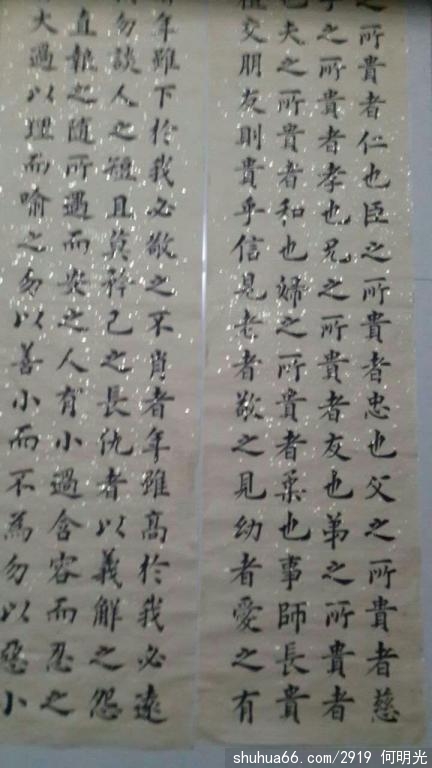 之所貴者仁也臣之所貴者忠也父之所貴者慈
之所貴者孝也兄之所貴者友也弟之所貴者
也夫之所貴者和也婦之所貴者柔也事師長貴
交朋友則貴乎信見老者敬之見幼者愛之有
年雖下於我必敬之不肖者年雖高於我必遠
勿談人之短且莫矜己之長仇者以義解之怨
直報之隨所遇而安之人有小過含容而忍之
大過以理而喻之勿以善小而不為勿以惡小
shuhua66.com/2919 何明光